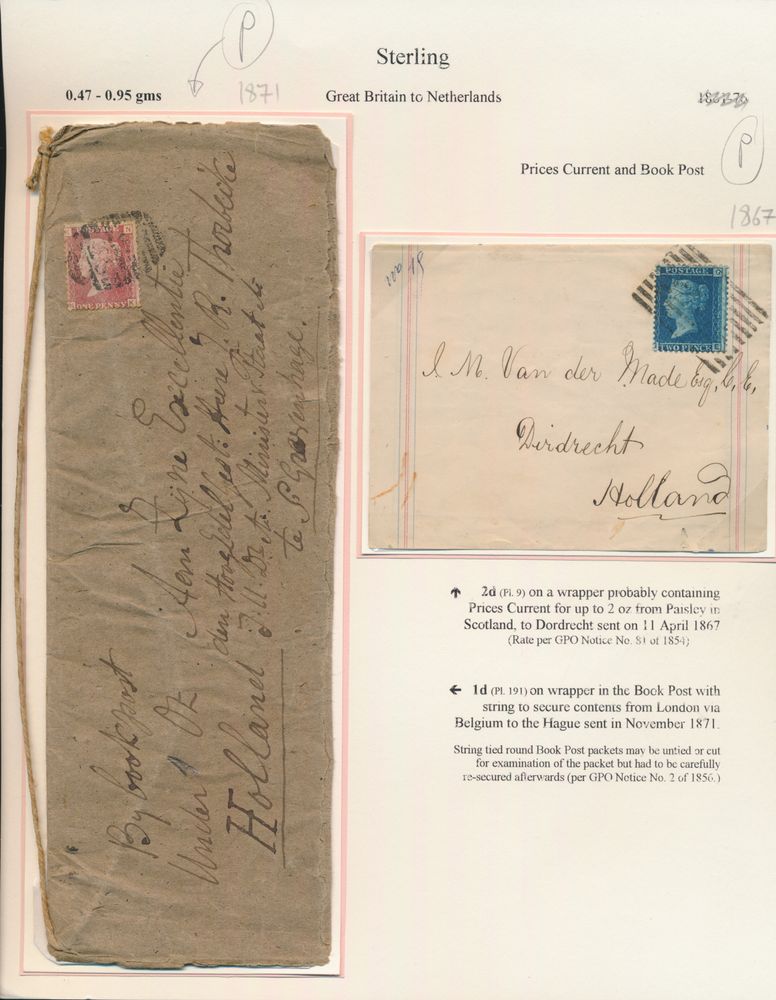 P
Sterling
0.47 - 0.95 gms
1871
Great Britain to Netherlands
P
Prices Current and Book Post
1867
POSTAGE
ONE PENNY
By book post
Under 1 Oz
Holland
Aan Zijne Excellentie
den Hoog Edel gest: Heere J. R. Thorbecke
te S Gravenhage.
POSTAGE
TWO PENCE
J. M. Van der Made Esq, C. E,
Dirdrecht
Holland
↑ 2d (Pl. 9) on a wrapper probably containing
Prices Current for up to 2 oz from Paisley in
Scotland, to Dordrecht sent on 11 April 1867
(Rate per GPO Notice No. 81 of 1854)
← 1d (PL. 191) on wrapper in the Book Post with
string to secure contents from London via
Belgium to the Hague sent in November 1871.
String tied round Book Post packets may be untied or cut
for examination of the packet but had to be carefully
re-secured afterwards (per GPO Notice No. 2 of 1856.)